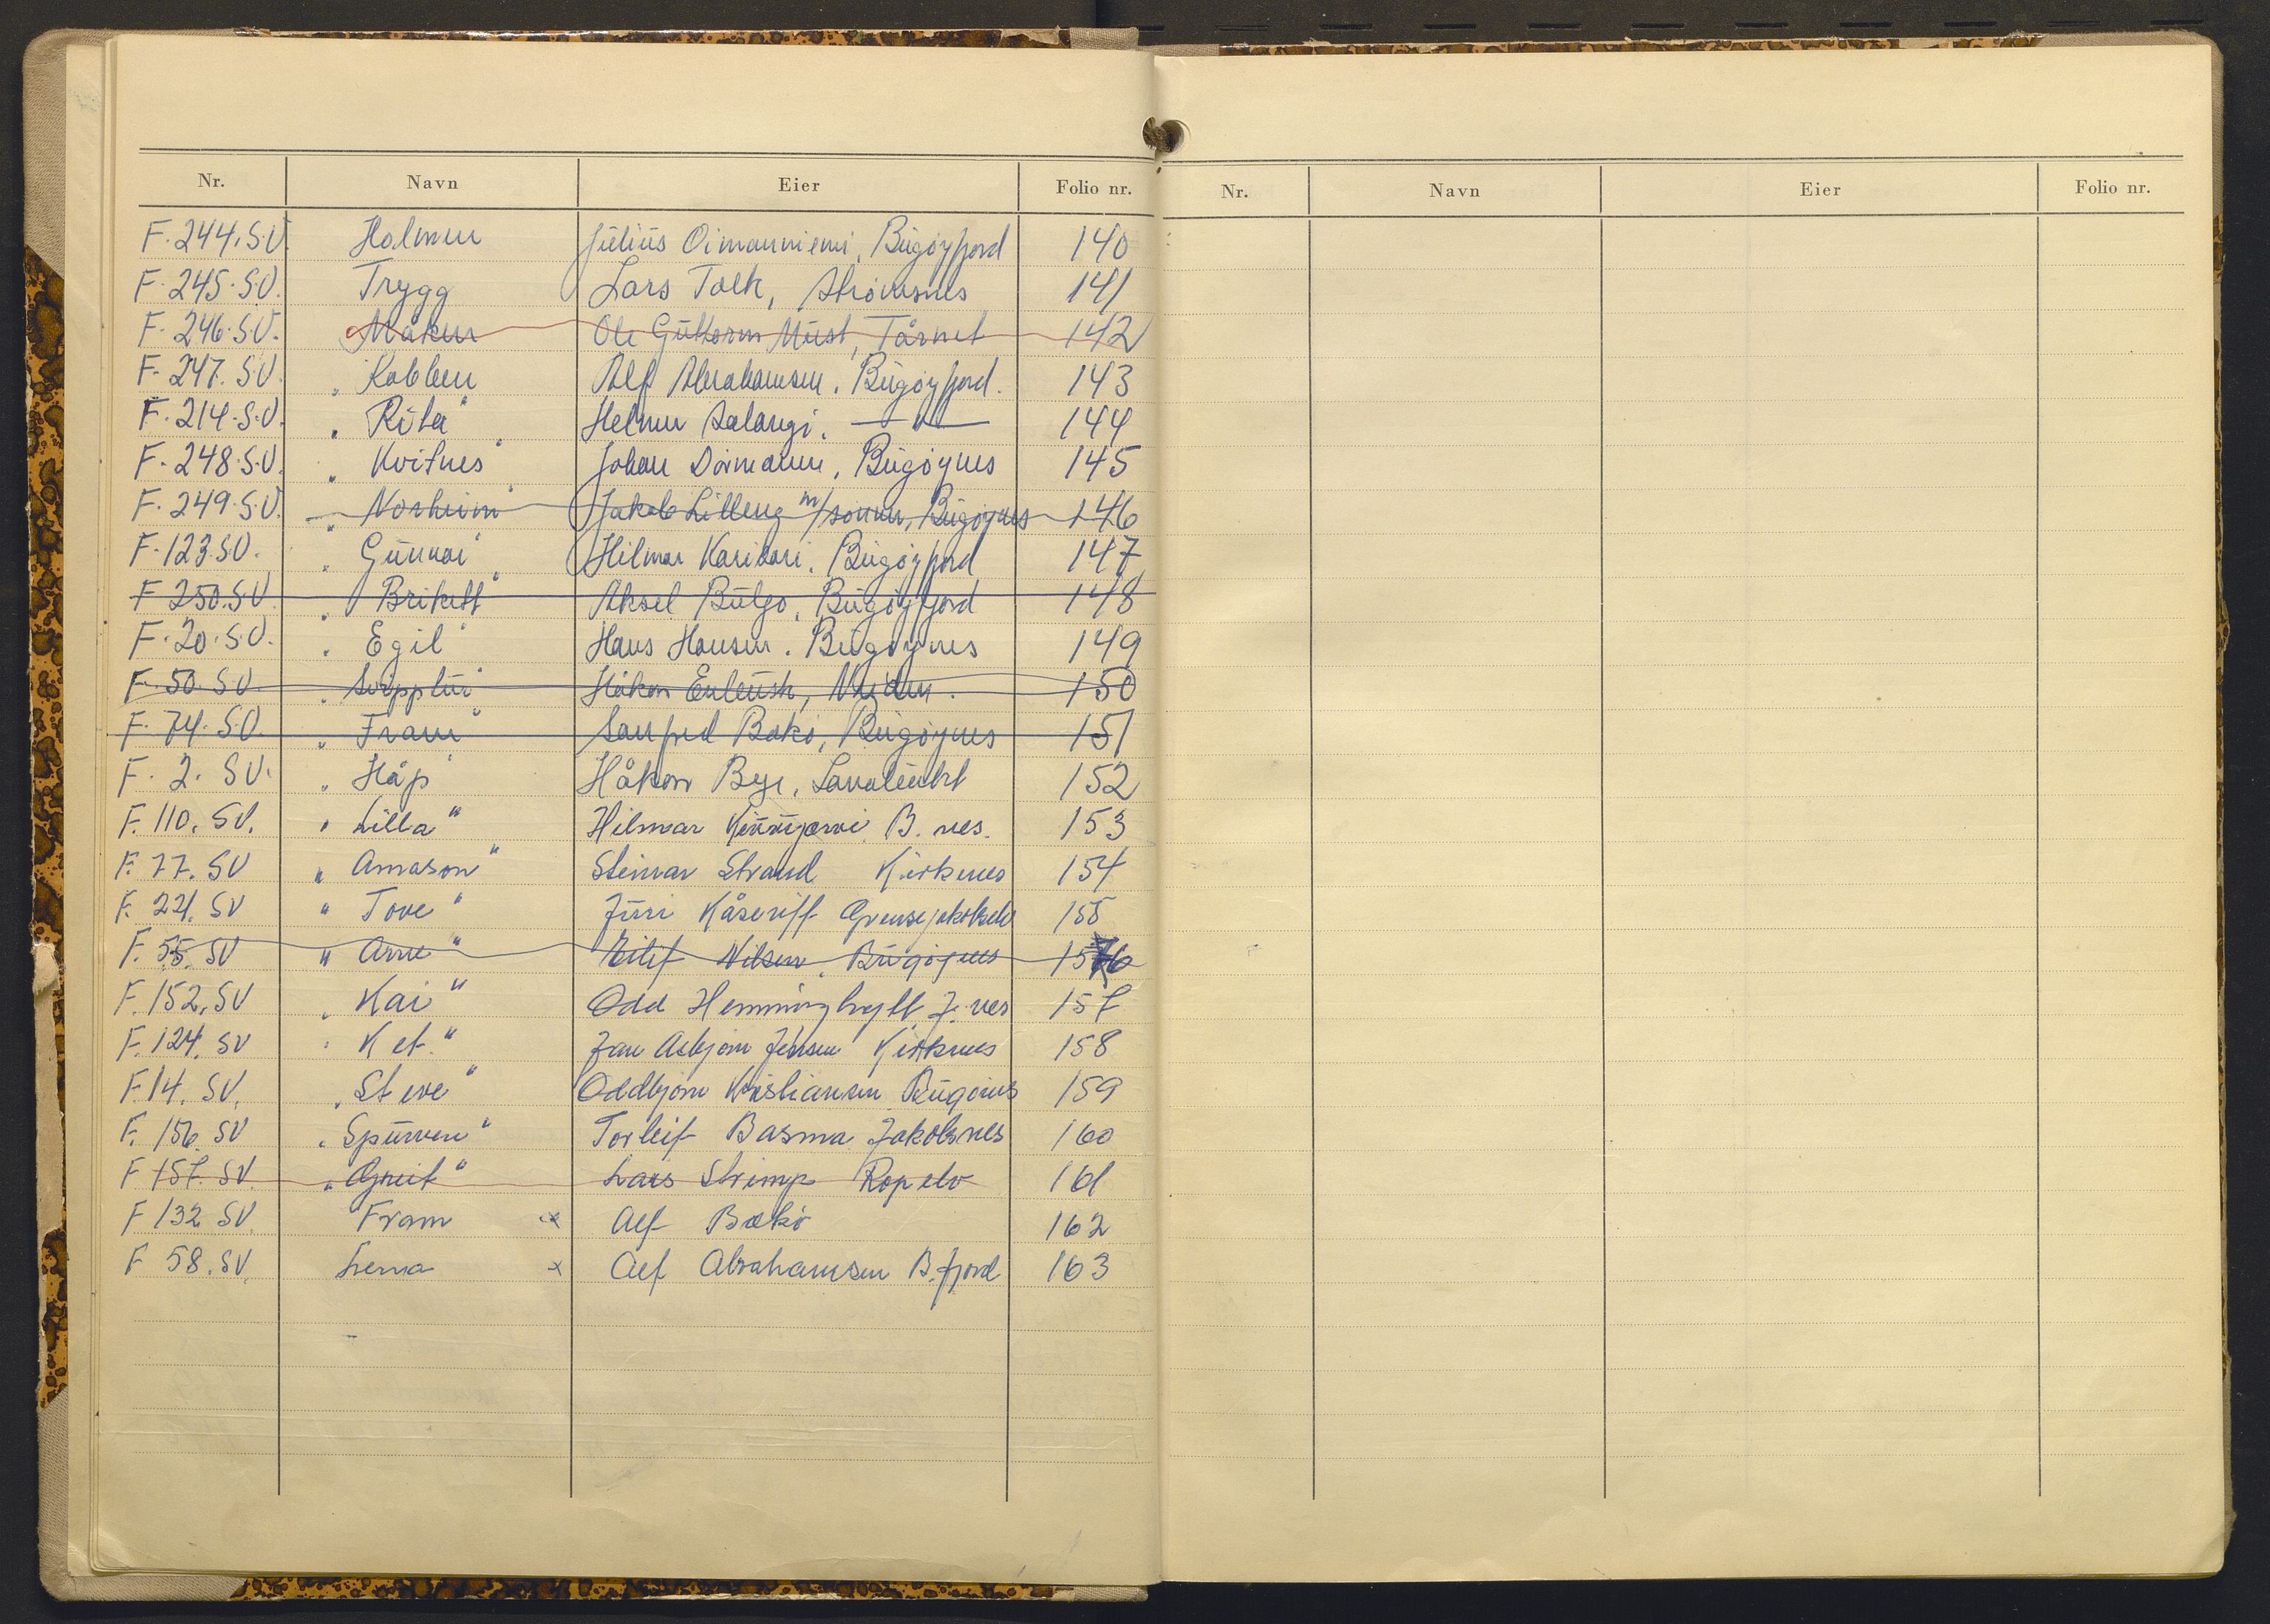 Nr. Navn Eier Folio nr.
F. 244. S.V. Holmen Julius Oimanniemi, Bugøyfjord 140
F. 245. S.V. Trygg Lars Talk, 141
F. 246. S.V. Måken Ole Guttorm Must, Tårnet 142
F. 247. S.V. "Kobben Alf Abrahamsen. Bugøyfjord. 143
F. 214. S.V. "Rita" Helmer Salangi. —"— 144
F. 248. S.V. "Kvitnes" Johan Dørmænen, Bugøynes 145
F. 249. S.V. "Norheim" Jakob Lilleng m/sønner, Bugøynes 146
F. 123. S.V. "Gunnar" Hilmar Karikari. Bugøyfjord 147
F 250. S.V. "Brikett" Aksel Bulgo, Bugøyfjord 148
F. 20. S.V. "Egil" Hans Hansen. Bugøynes 149
F. 50. S.V. Håkon Neiden. 150
F. 74. S.V. "Fram" Sanfred Bakø, Bugøynes 151
F. 2. SV. "Håp" Håkon Bye, 152
F. 110. SV. "Lilla" Hilmar B. nes. 153
F. 77. SV "Amason" Steinar Strand Kirkenes 154
F. 221. SV "Tove" Juri Grensejakobselv 155
F. 55. SV "Arne" Eilif Nilsen, Bugøynes 156
F. 152. SV "Kai" Odd J. nes 157
F. 124. SV "Ket." Jan Asbjørn Jensen Kirkenes 158
F. 14. SV. "Steve" Oddbjørn Kristiansen Bugøines 159
F. 156. SV "Spurven" Torleif Basma Jakobsnes 160
F 157. SV. "Greit" Lars Strimp Ropelv 161
F 132 SV. Fram x Alf Bakø 162
F 58. SV. Lena x Alf Abrahamsen B. fjord 163
Nr. Navn Eier Folio nr.